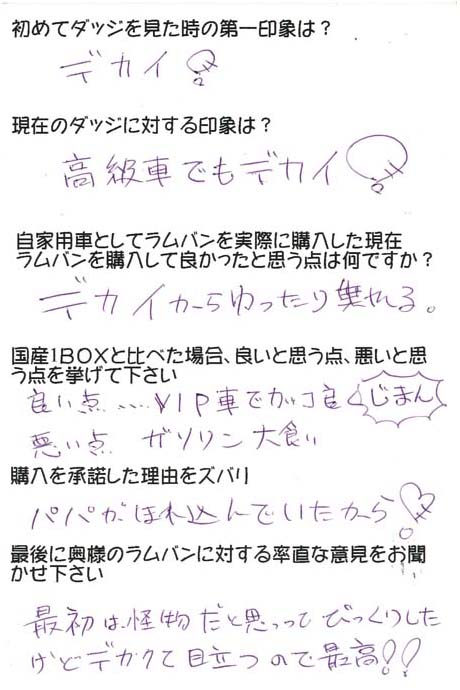 初めてダッジを見た時の第一印象は？
デカイ！
現在のダッジに対する印象は？
高級車でもデカイ！
自家用車としてラムバンを実際に購入した現在
ラムバンを購入して良かったと思う点は何ですか？
デカイからゆったり乗れる。
国産1BOXと比べた場合、良いと思う点、悪いと思
う点を挙げて下さい
良い点……VIP車でカッコ良 じまん
悪い点 ガソリン大食い
購入を承諾した理由をズバリ
パパがほれ込んでいたから！
最後に奥様のラムバンに対する率直な意見をお聞
かせ下さい
最初は怪物だと思っってびっくりした
けどデカクて目立つので最高!!